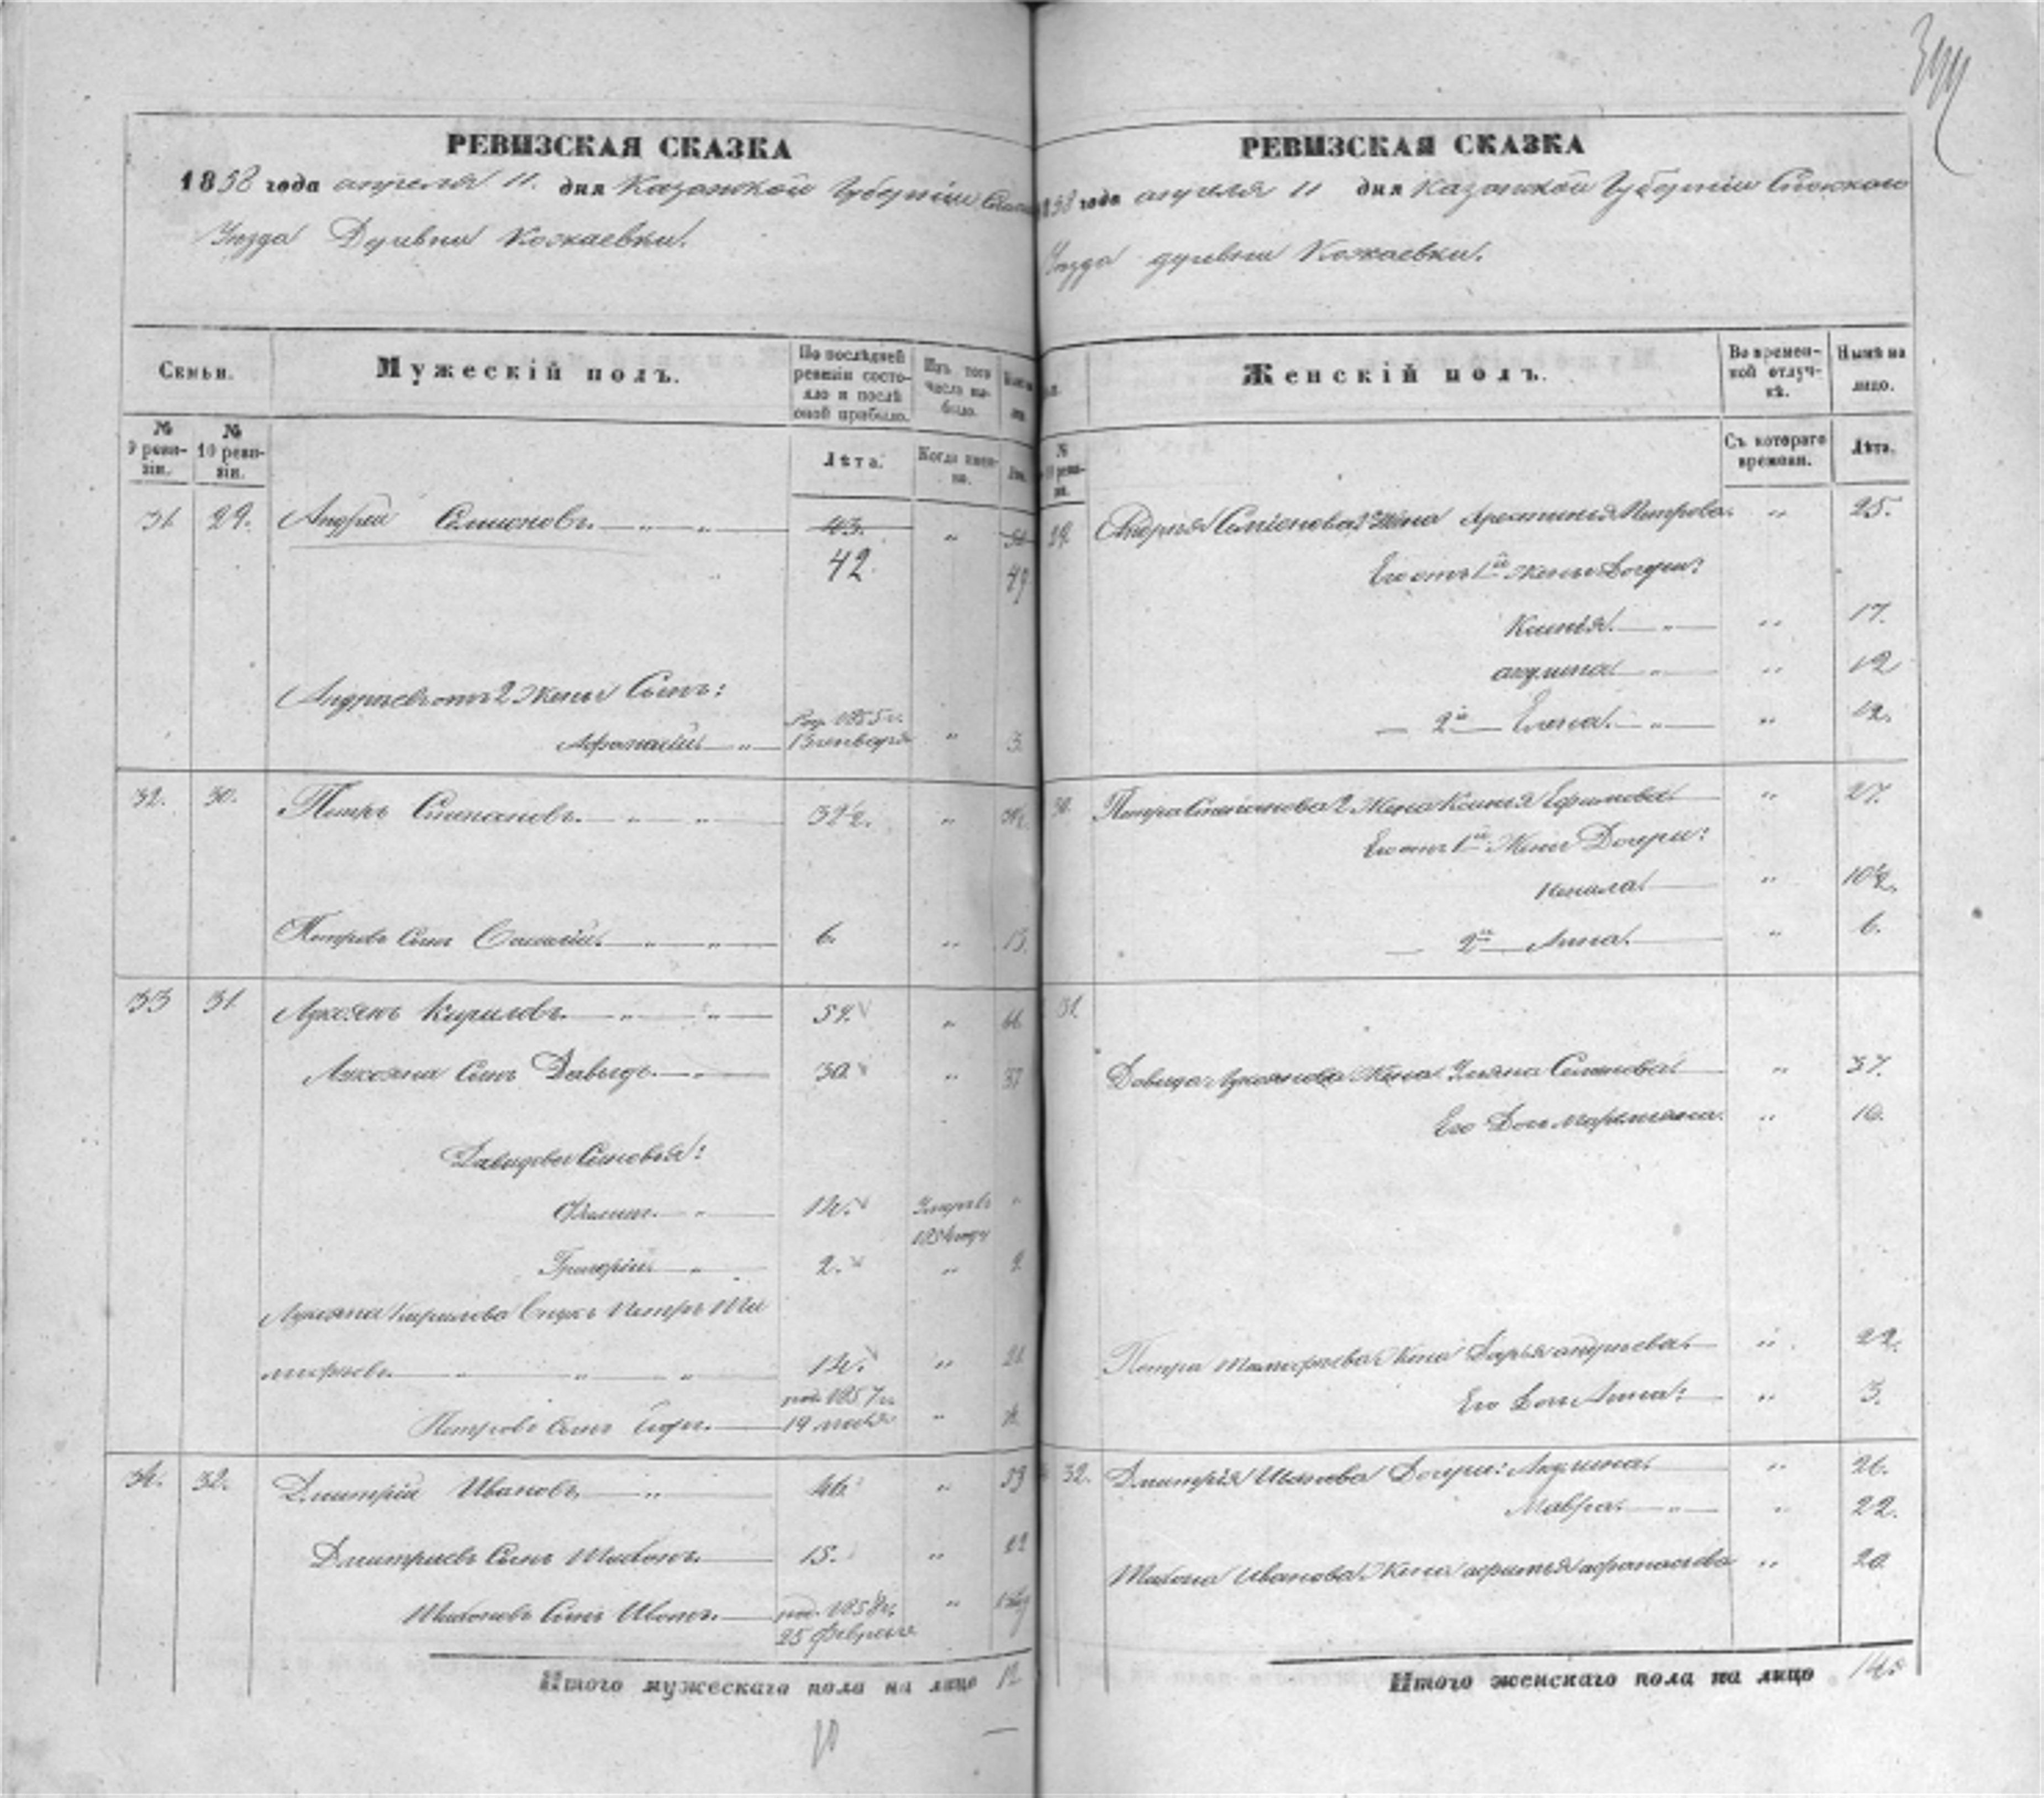 РЕВИЗСКАЯ СКАЗКА
1858 года апреля 11. дня Казанской Губернии
Уезда Деревни Кожаевки.
Семьи.
Мужескій полъ.
По послѣдней ревизіи состояло и послѣ оной прибыло.
Изъ того числа выбыло.
№ 9 ревизіи.
№ 10 ревизіи.
Лѣта.
Когда именно.
31. 29. Андрей Семионовъ. 43. „
42. 49
Андреевъ отъ 2 Жены Сынъ:
Род. 1855 г.
Афанасий. „ 3.
32. 30. Петръ Степановъ. 32½. „
Петровъ Сынъ Василий. 6. „ 13.
33 31. Лукоянъ Кириловъ. 59. „ 66
Лукояна Сынъ Давыдъ. 30. „ 37
Давыдовы Сыновья:
Филипъ. 14. Умеръ въ
Григорий. 2. „ 9
Лукояна Кирилова Внукъ Петръ Ти
мофеевъ. 14. „ 21.
род. 1857 г.
Петровъ Сынъ Егоръ. 19 „
34. 32. Дмитрий Ивановъ 46. „ 53
Дмитриевъ Сынъ Тихонъ. 15. „ 22
Тихоновъ Сынъ Иванъ. род. 1858 г. „
25 февраля
Итого мужескаго пола на лицо 12
РЕВИЗСКАЯ СКАЗКА
1858 года апреля 11 дня Казанской Губернии Спаского
Уезда деревни Кожаевки.
Женскій полъ.
Во временной отлучкѣ.
Нынѣ на лицо.
№ 10 ревизіи.
Съ котораго времени.
Лѣта.
29. Андрея Семионова 2 Жена Арестинья Петрова. „ 25.
Его отъ 1й Жены Дочери:
Ксинія. „ 17.
акулина. „ 19
— 2й — Елена. „ 12.
30. Петра Степанова 2 Жена Ксинья Ефимова. „ 27.
Его отъ 1й Жены Дочери:
„ 10½.
— 2й — Анна. „ 6.
31.
Давыда Лукоянова Жена Ульяна Семенова. „ 37.
Его Дочь Маремьяна. „ 10.
Петра Тимофеева Жена Дарья андреева. „ 22.
Его Дочь Анна: „ 3.
32. Дмитрія Иванова Дочери: Акулина. „ 26.
Мавра. „ 22.
Тихона Иванова Жена афимья афанасьева „ 20
Итого женскаго пола на лицо 14.